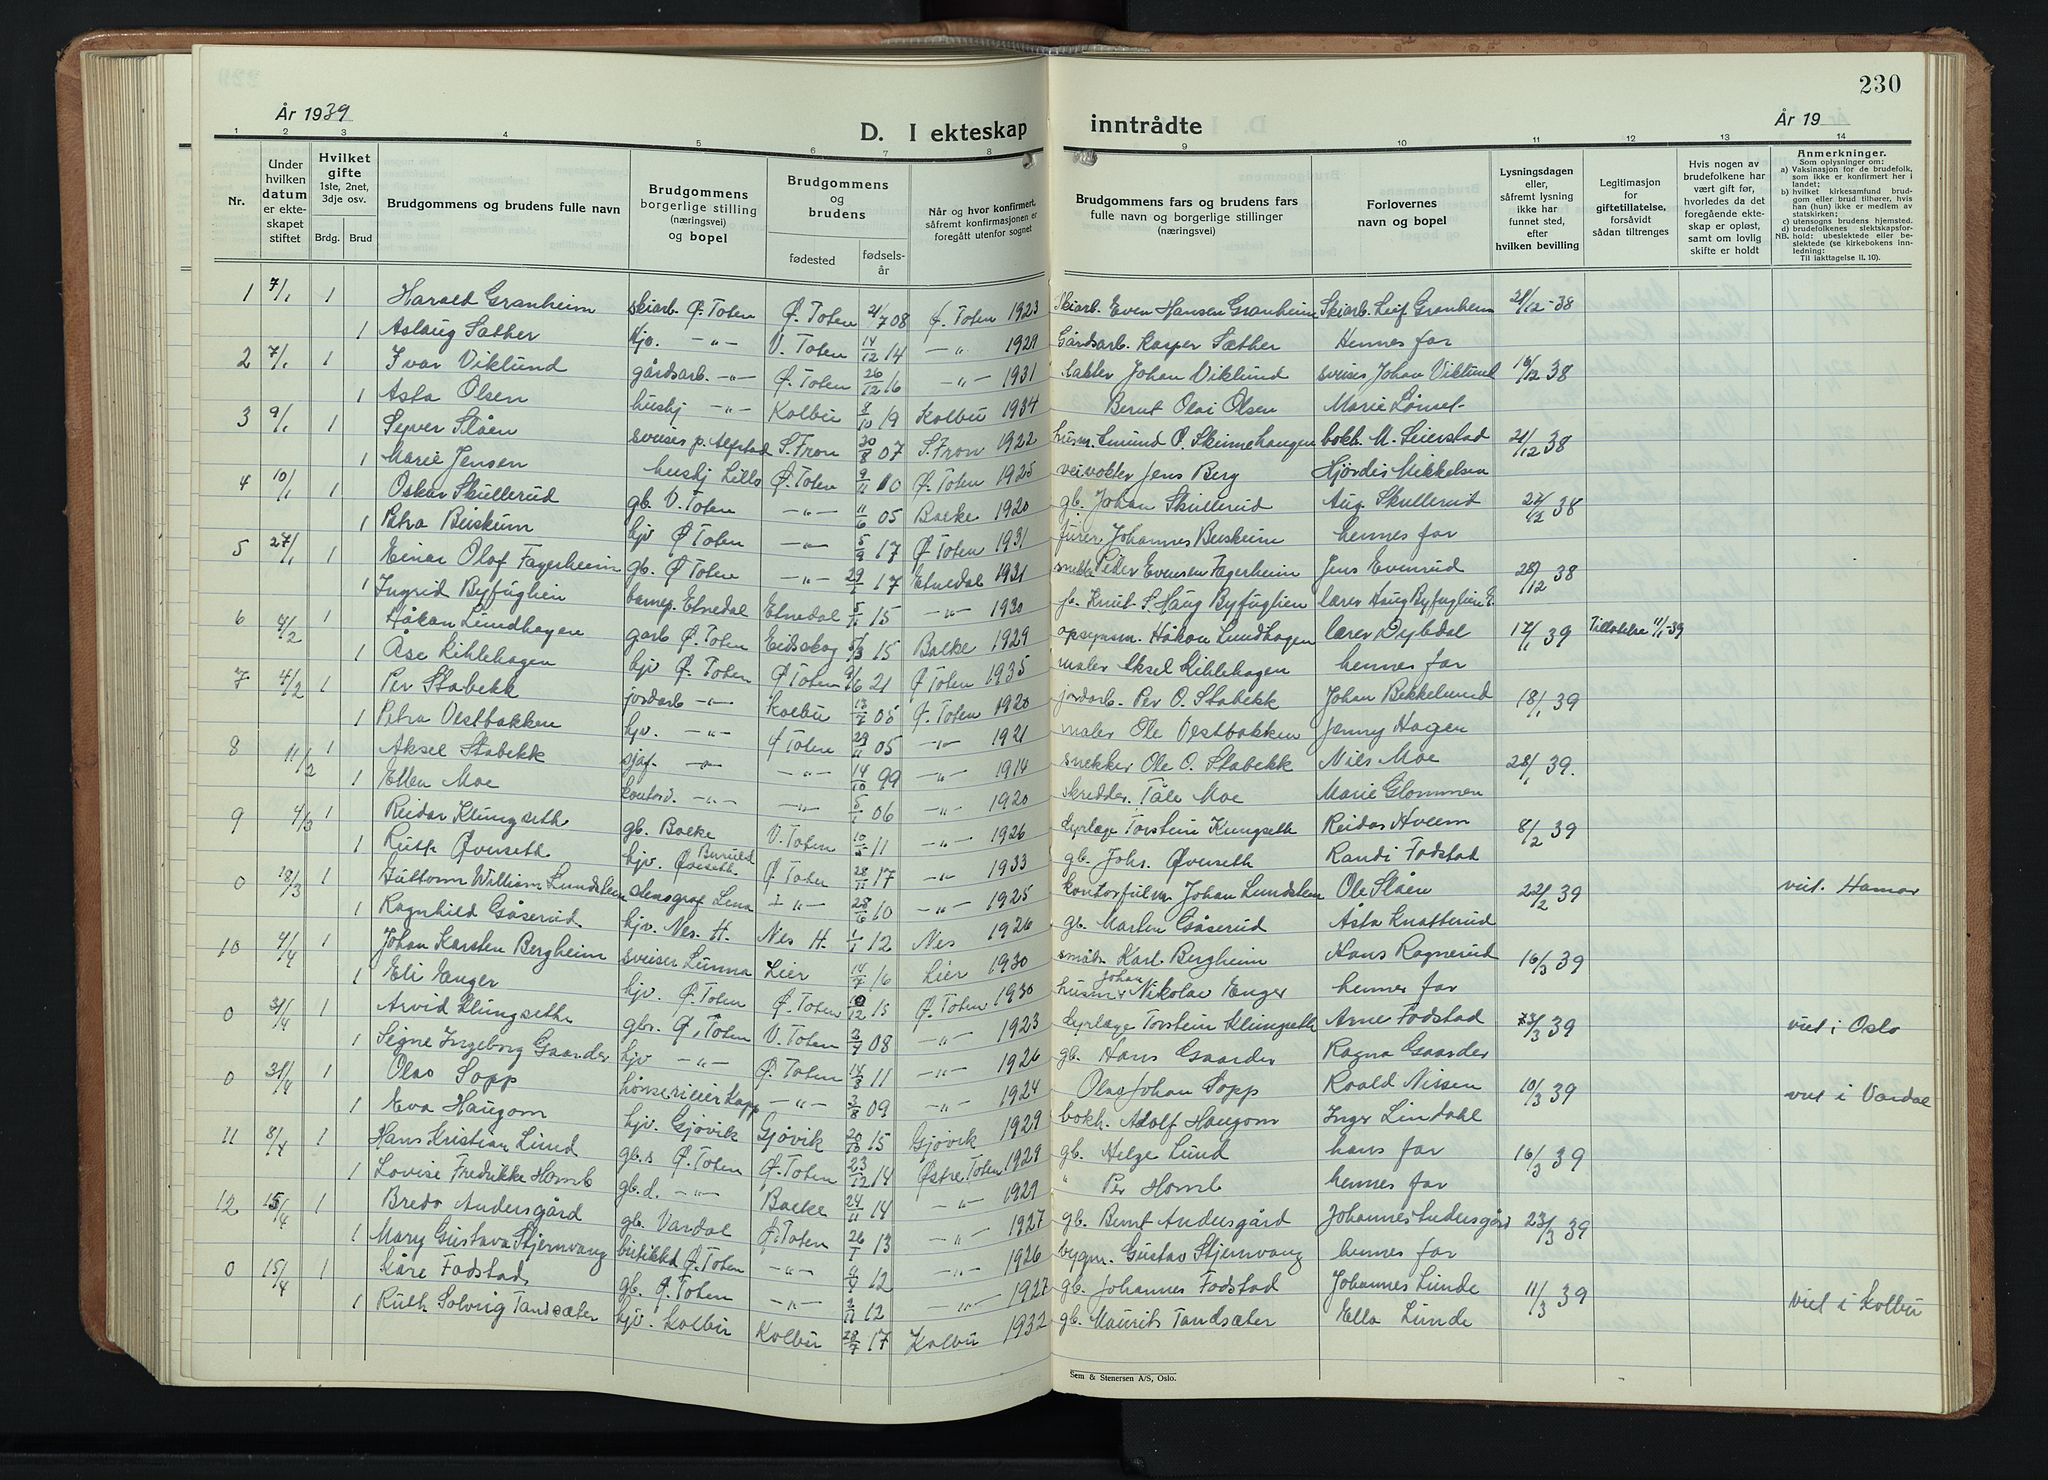 230
År 1939
D. I ekteskap inntrådte
År 19
1 2 3 4 5 6 7 8 9 10 11 12 13 14
Nr.
Under hvilken datum er ekteskapet stiftet
Hvilket gifte 1ste, 2net, 3dje osv.
Brdg. Brud
Brudgommens og brudens fulle navn
Brudgommens borgerlige stilling (næringsvei) og bopel
Brudgommens og brudens
fødested
fødsels-år
Når og hvor konfirmert, såfremt konfirmasjonen er foregått utenfor sognet
Brudgommens fars og brudens fars fulle navn og borgerlige stillinger (næringsvei)
Forlovernes navn og bopel
Lysningsdagen eller, såfremt lysning ikke har funnet sted, efter hvilken bevilling
Legitimasjon for giftetillatelse, forsåvidt sådan tiltrenges
Hvis nogen av brudefolkene har vært gift før, hvorledes da det foregående ekteskap er opløst, samt om lovlig skifte er holdt
Anmerkninger.
Som oplysninger om:
a) Vaksinasjon for de brudefolk, som ikke er konfirmert her i landet;
b) hvilket kirkesamfund brudgom eller brud tilhører, hvis han (hun) ikke er medlem av statskirken;
c) utensogns brudens hjemsted.
d) brudefolkenes slektskapsforhold: ubeslektede eller beslektede (se kirkebokens innledning:
NB.
Til iakttagelse II. 10).
1 7/1 1 Harald Granheim skiarb. Ø. Toten Ø. Toten 2/7 08 Ø. Toten 1923 Skiarb. Even Hansen Granheim Skiarb. Leif Granheim 28/12-38
1 Aslaug Sæther hjv. -"- V. Toten 14/12 14 -"- 1928 Gårdsarb. Kasper Sæther Hennes far
2 7/1 1 Ivar Viklund gårdsarb. -"- Ø. Toten 26/12 16 -"- 1931 Johan Viklund sveiser Johan Viklund 16/12 38
1 Asta Olsen hushj -"- Kolbu 8/10 19 Kolbu 1934 Bernt Olai Olsen Marie Lønset
3 9/1 1 Syver Slåen sveiser p. Alfstad S. Fron 20/8 07 S. Fron 1922 husm. Amund O. Skinnehaugen bokh. M. Seierstad 21/12 38
1 Marie Jensen hushj Lillo Ø. Toten 9/11 10 Ø. Toten 1925 veivokter Jens Berg Hjørdis Mikkelsen
4 10/1 1 Oskar Skullerud gb. V. Toten -"- 11/6 05 Balke 1920 gb. Johan Skullerud Aug. Skullerud 22/12 38
1 Petra Buskum hjv Ø Toten -"- 5/9 17 Ø Toten 1931 furer Johannes Buskum hennes far
5 27/1 1 Einar Olof Fagerheim gb. Ø Toten -"- 29/1 17 Etnedal 1931 snekk. Peder Evensen Fagerheim Jens Evenrud 28/12 38
1 Ingrid Byfuglien barnep. Etnedal Etnedal 5/1 15 -"- 1930 Knut S. Haug Byfuglien lærer Haug Byfuglien E.
6 4/2 1 Håkon Lundhagen garb Ø. Toten Eidskog 5/3 15 Balke 1929 opsynsm. Håkon Lundhagen lærer Dybdal 17/1 39 Tillatelse 11/1-39
1 Åse Lihlehagen hjv Ø. Toten Ø Toten 9/6 21 Ø Toten 1935 maler Aksel Lihlehagen hennes far
7 4/2 1 Per Stabekk jordarb -"- Kolbu 13/7 05 Ø. Toten 1920 jordarb. Per O. Stabekk Johan Bekkelund 18/1 39
1 Petra Vestbakken hjv. -"- Ø Toten 29/11 05 -"- 1921 maler Ole Vestbakken Jenny Hagen
8 11/2 1 Aksel Stabekk sjåf. -"- -"- 14/10 99 -"- 1914 snekker Ole O. Stabekk Nils Moe 28/1 39.
1 Ellen Moe kontord. -"- -"- 5/1 06 -"- 1920 skredder. Tåle Moe Marie Glommen
9 4/3 1 Reidar Klungseth gb. Balke V. Toten 10/5 11 -"- 1926 dyrlæge Torstein Klungseth Reidar Hveem 8/2 39
1 Ruth Øverseth hjv. Øverseth Buruld Ø Toten 28/11 17 -"- 1933 gb. Johs. Øverseth Randi Fodstad
0 18/3 1 Guttorm William Lundstein stenograf Lena -"- 28/6 10 -"- 1925 kontorfullm Johan Lundstein Ole Slåen 22/2 39 viet. Hamar
1 Ragnhild Gåserud hjv. Nes. H. Nes H. 1/1 12 Nes 1926 gb. Martin Gåserud Åsta Knatterud
10 4/4 1 Johan Karsten Bergheim sveiser Lunna Lier 14/7 16 Lier 1930 småbr. Karl Bergheim Hans Ragnerud 16/3 39
1 Eli Enger hjv. Ø. Toten Ø. Toten 10/12 15 Ø. Toten 1930 husmr Johan Nikolai Enger hennes far
0 31/4 1 Arvid Klungseth gbr. Ø. Toten V. Toten 3/4 08 -"- 1923 dyrlæge Torstein Klungseth Arne Fodstad 23/3 39 viet i Oslo
1 Signe Ingeborg Gaarder hjv -"- Ø. Toten 14/8 11 -"- 1926 gb. Hans Gaarder Ragna Gaarder
0 31/4 1 Olav Sopp hønserieier Kapp -"- 3/8 09 -"- 1924 Olav Johan Sopp Roald Nissen 10/3 39 viet i Vardal
1 Eva Haugom hjv. Gjøvik Gjøvik 20/10 15 Gjøvik 1929 bokh. Adolf Haugom Inger Lindahl
11 8/4 1 Hans Kristian Lund gb.s Ø. Toten Ø. Toten 23/12 14 Østre Toten 1929 gb. Helge Lund hans far 16/3 39
1 Lovise Fredrikke Homb gb.d. -"- Balke 24/11 14 -"- 1929 " Per Homb hennes far
12 15/4 1 Bredo Andersgård gb. Vardal Ø. Toten 26/1 13 -"- 1927 gb. Bernt Andersgård Johannes Andersgård 23/3 39
1 Mary Gustava Stjernvang butikkd Ø. Toten -"- 12 -"- 1926 vegm. Gustav Stjernvang hennes far
0 15/4 1 Kåre Fodstad gb. Ø. Toten -"- 12 -"- 1927 gb. Johannes Fodstad Johannes Lunde 11/3 39 viet i Kolbu
1 Ruth Solveig Tandsæter hjv. Kolbu Kolbu 28/7 17 Kolbu 1932 gb. Maurits Tandsæter Ella Lunde
Sem & Stenersen A/S, Oslo.